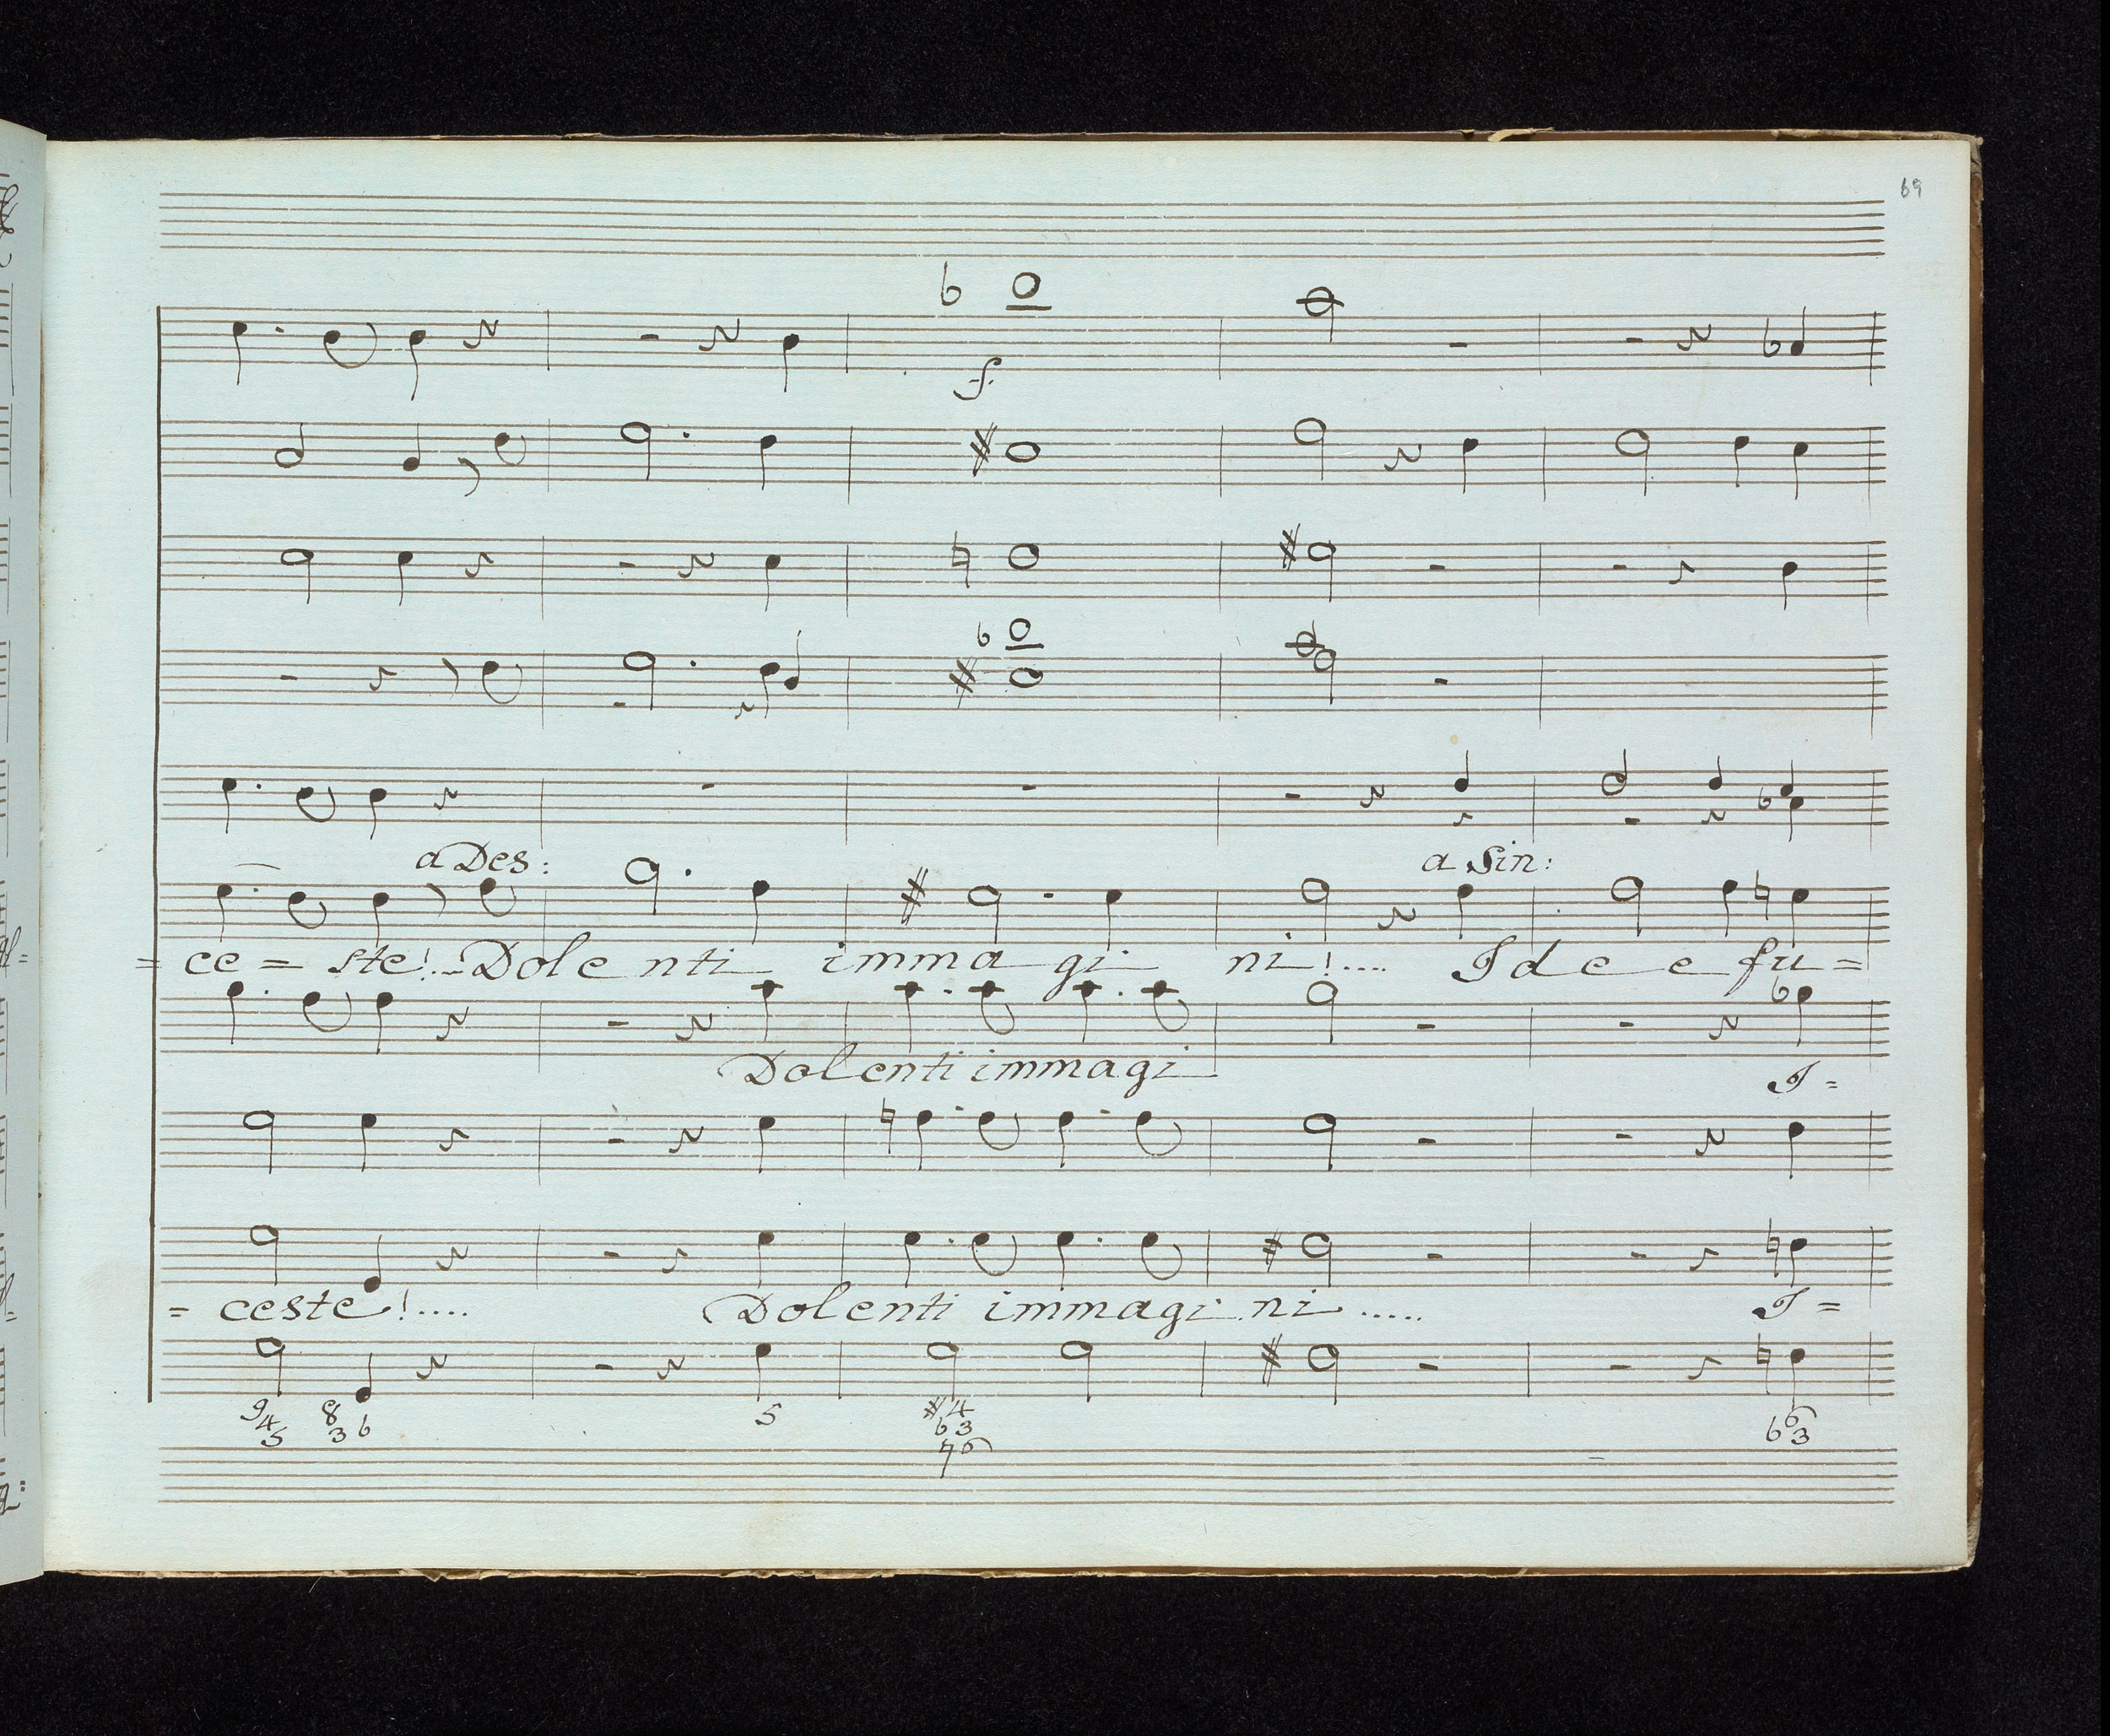 69
f.
a Des: a Sin:
= ce = ste!... Dolenti immagi ni!.... Idee fu =
Dolenti immagi I =
= ceste!.... Dolenti immagini ..... I =
9 8 5 #4 6
4 3 6 b3 b3
5 76